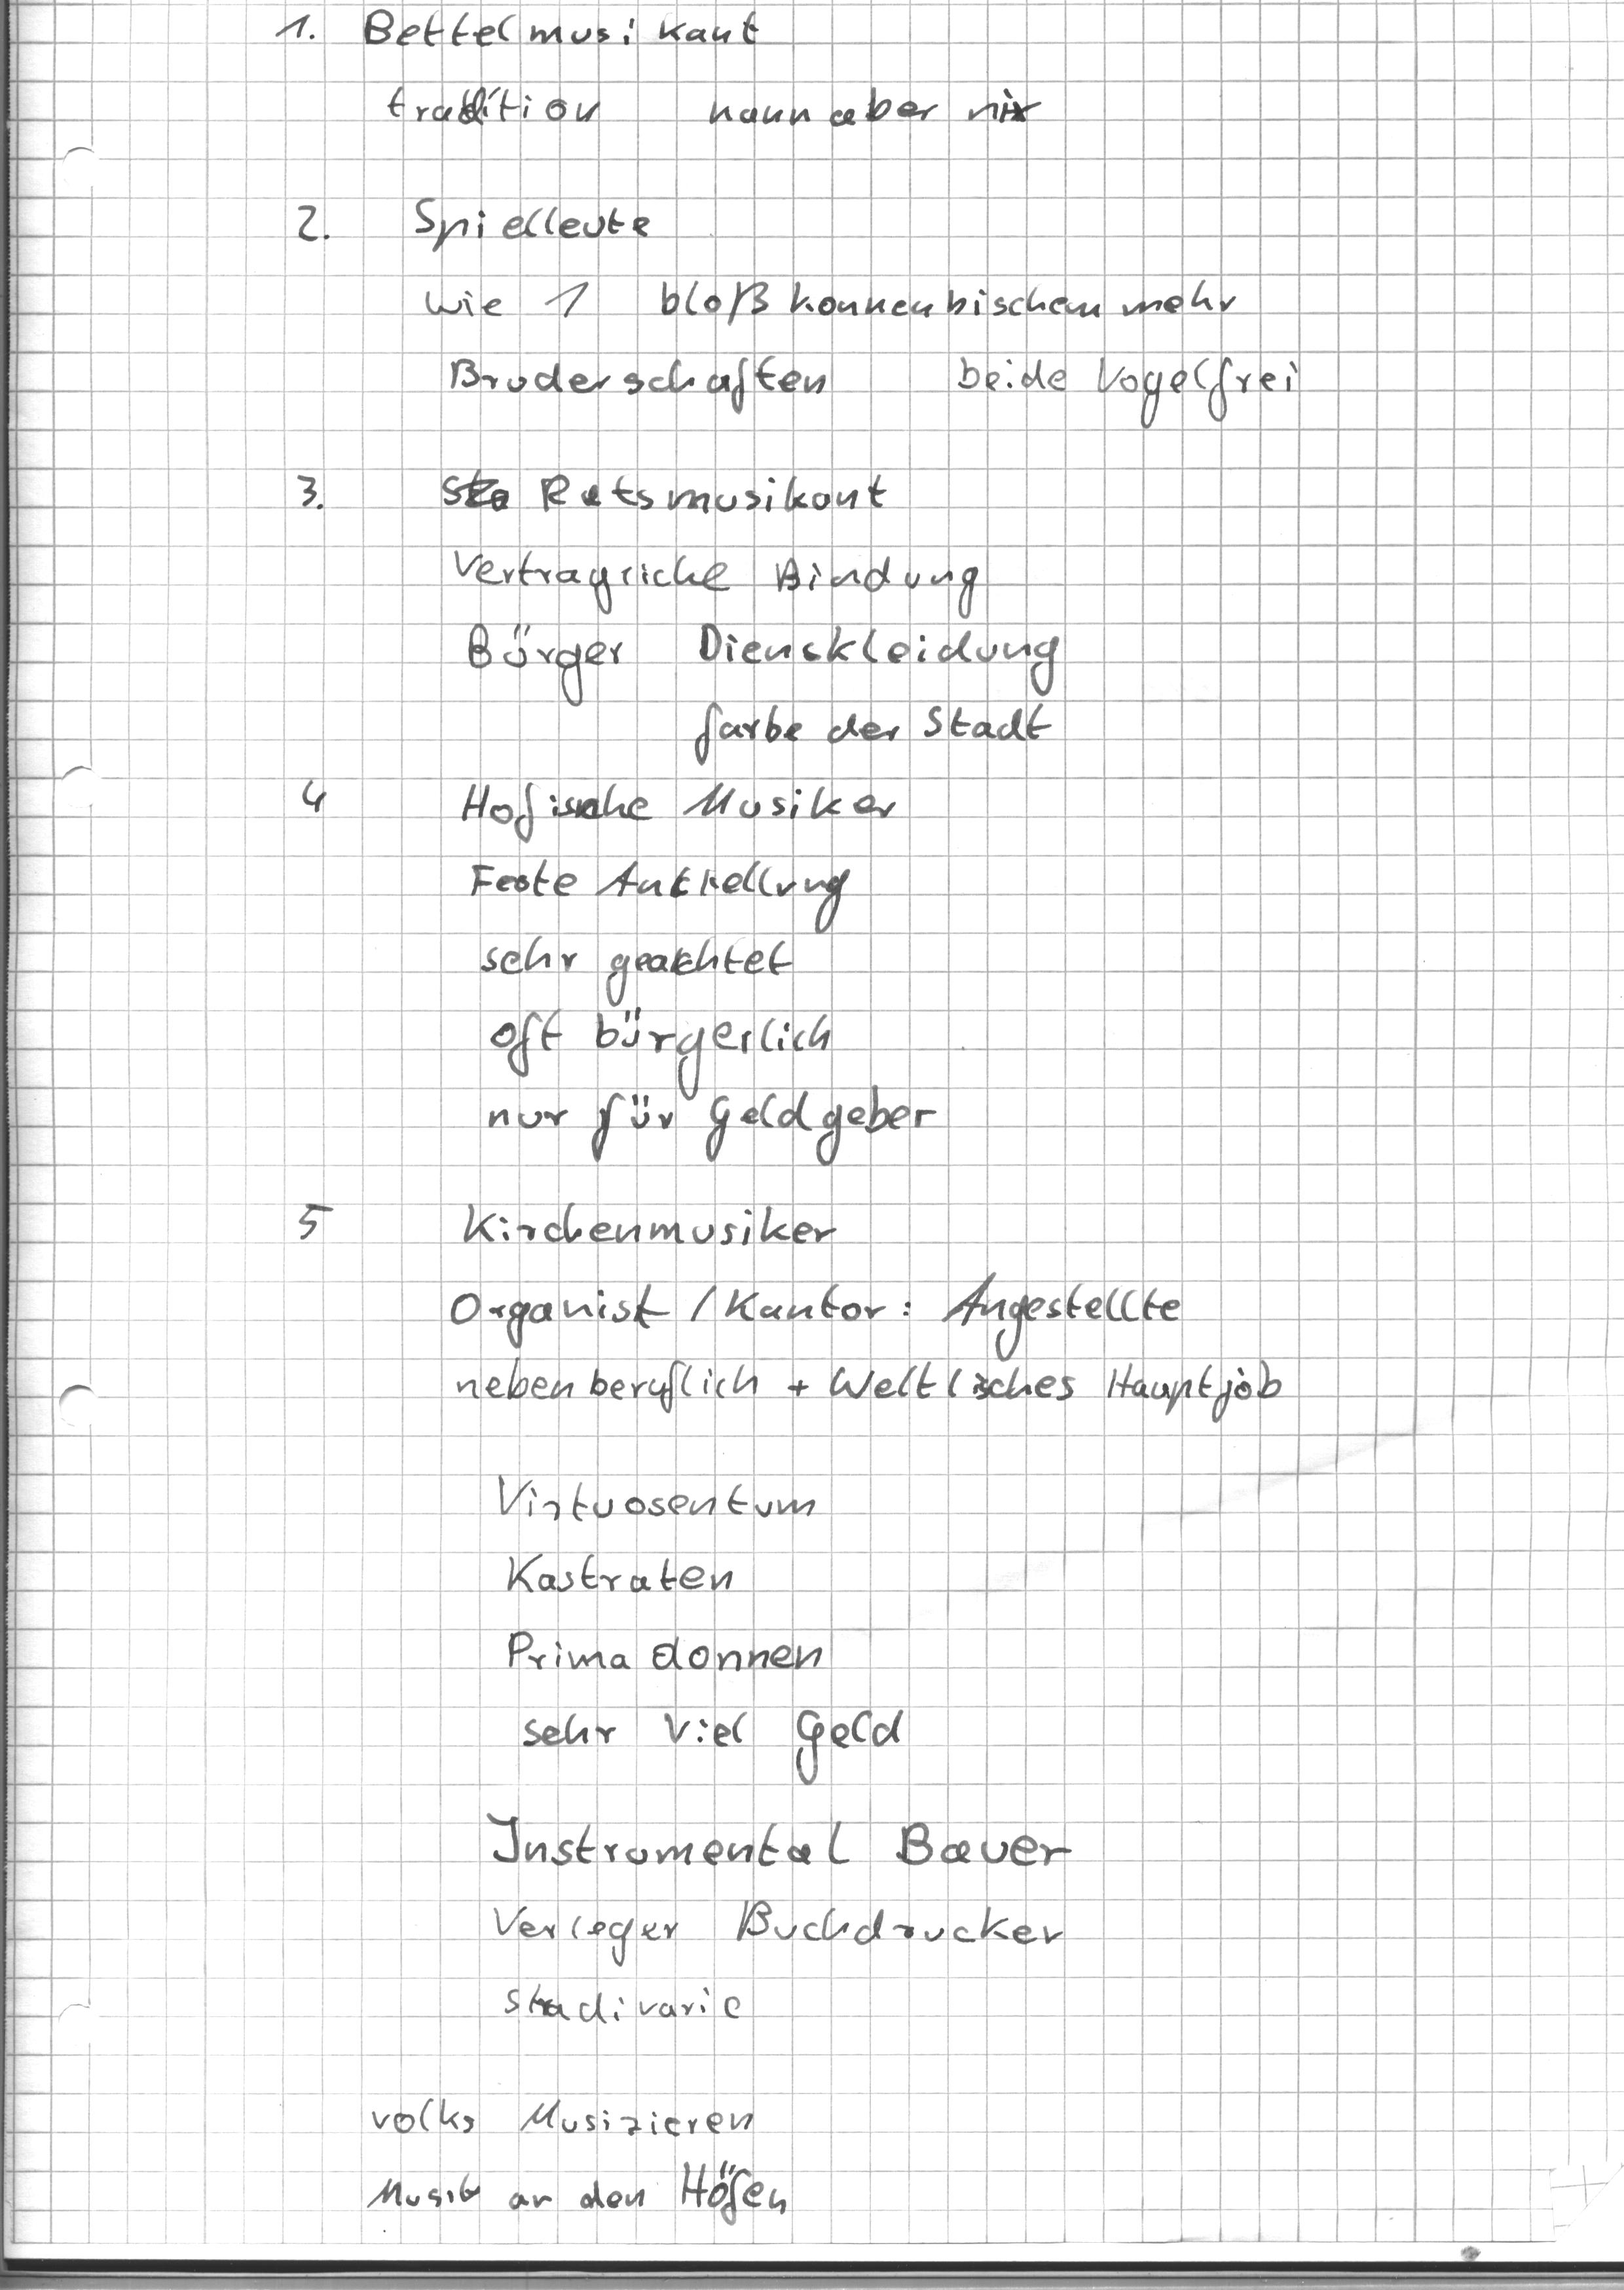 1. Bettelmusikant
tradition kann aber nix
2. Spielleute
wie 1 bloß konnen bischem mehr
Bruderschaften beide Vogelfrei
3. Ratsmusikant
Vertragliche Bindung
Bürger Dienskleidung
farbe der Stadt
4 Hofische Musiker
Feste Antstellung
sehr geachtet
oft bürgerlich
nur für Geldgeber
5 Kirchenmusiker
Organist / Kantor: Angestellte
nebenberuflich + Weltlisches Hauptjob
Virtuosentum
Kastraten
Prima donnen
sehr viel Geld
Instrumental Bauer
Verleger Buchdrucker
Stradivarie
volks Musizieren
Musik an den Höfen